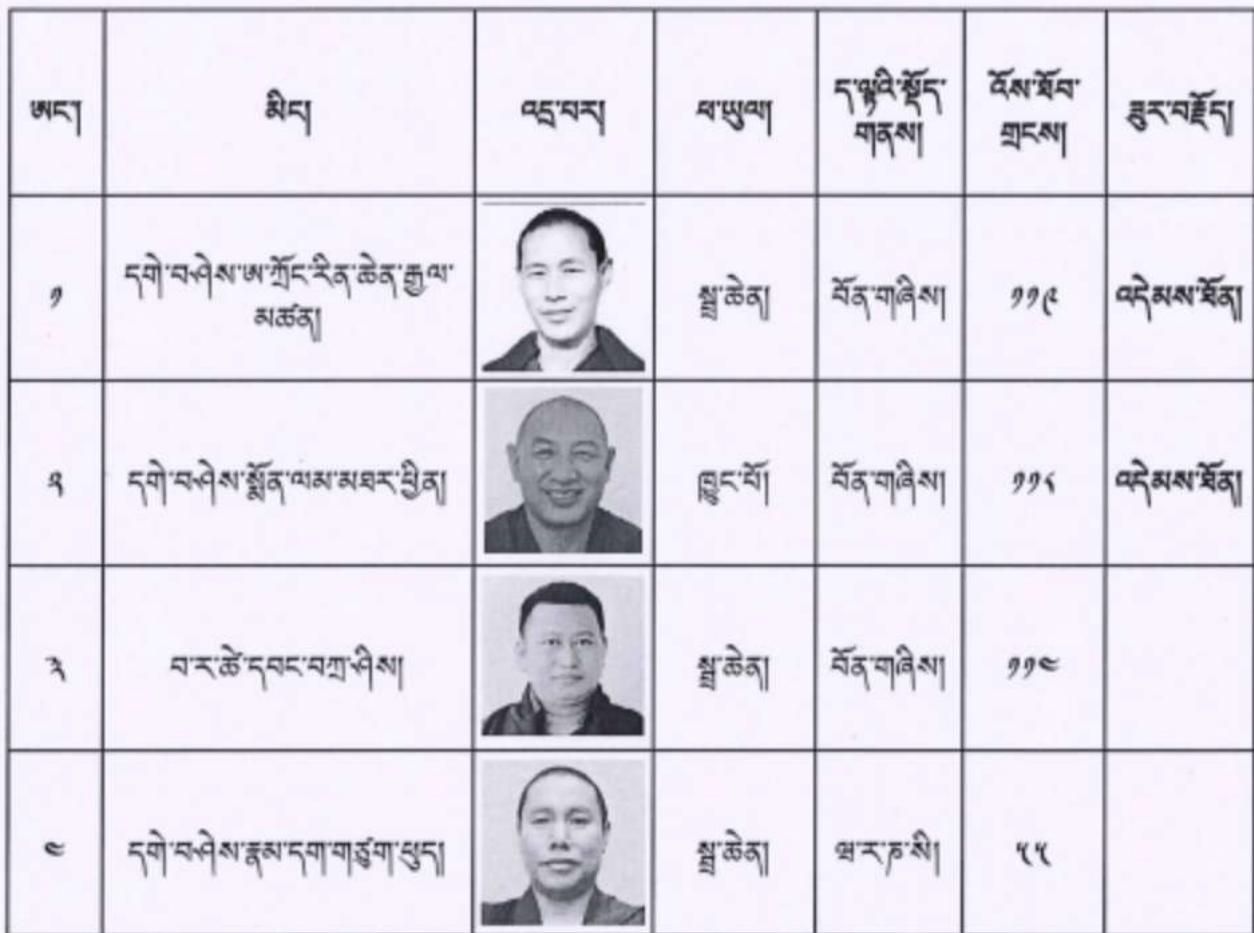 ཨང་། མིང་། འདྲ་བར། ཕ་ཡུལ། ད་ལྟའི་སྡོད་ འོས་ཐོབ་ ཟུར་བརྗོད།
གནས། གྲངས།
༡ དགེ་བཤེས་ཨ་ཀྲོང་རིན་ཆེན་རྒྱལ་ སྦྲ་ཆེན། བོན་གཞིས། ༡༡༩ འདེམས་ཐོན།
མཚན།
༢ དགེ་བཤེས་སྨོན་ལམ་མཐར་ཕྱིན། ཁྱུང་པོ། བོན་གཞིས། ༡༡༨ འདེམས་ཐོན།
༣ བ་ར་ཚེ་དབང་བཀྲ་ཤིས། སྦྲ་ཆེན། བོན་གཞིས། ༡༡༤
༤ དགེ་བཤེས་རྣམ་དག་གཙུག་ཕུད། སྦྲ་ཆེན། ཝ་ར་ཎ་སི། ༥༥